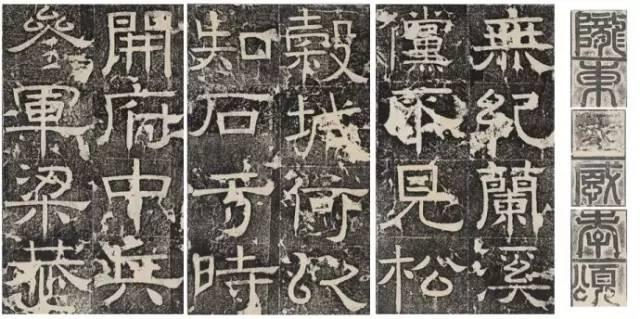 隴東王感孝頌
無紀蘭溪
儻不見松
穀城何以
知石于時
開府中兵
參軍梁恭